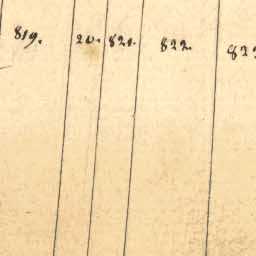 819. 20. 821. 822.